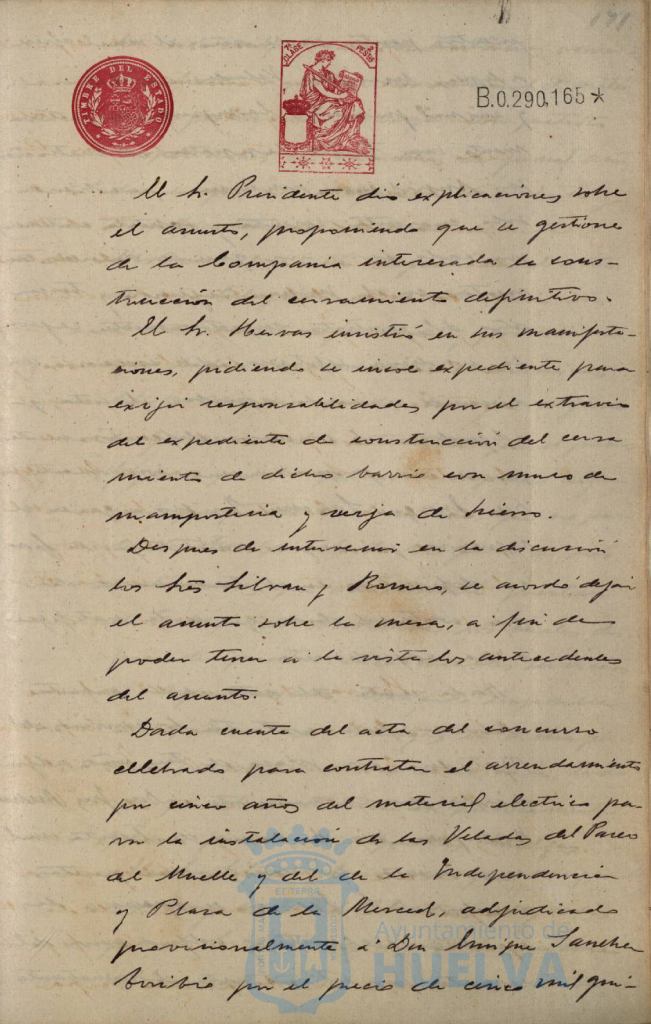 191
TIMBRE DEL ESTADO
1ª CLASE 2 PESTAS
B.0.290,165*
El Sr. Presidente dió explicaciones sobre
el asunto, proponiendo que se gestione
de la Compañia interesada la cons-
trucción del cerramiento definitivo.
El Sr. Hervas insistió en sus manifesta-
ciones, pidiendo se incoe expediente para
exigir responsabilidades por el extravio
del expediente de construcción del cerra
miento de dicho barrio con muro de
mamposteria y verja de hierro.
Despues de intervenir en la discusión
los Srés Silvan y Romero, se acordó dejar
el asunto sobre la mesa, a fin de
poder tener a la vista los antecedentes
del asunto.
Dada cuenta del acta del concurso
celebrado para contratar el arrendamiento
por cinco años del material electrico pa-
ra la instalación de las Veladas del Paseo
del Muelle y del de la Independencia
y Plaza de la Merced, adjudicado
provisionalmente á Don Enrique Sanchez
por el precio de cinco mil qui-
Ayuntamiento de
HUELVA